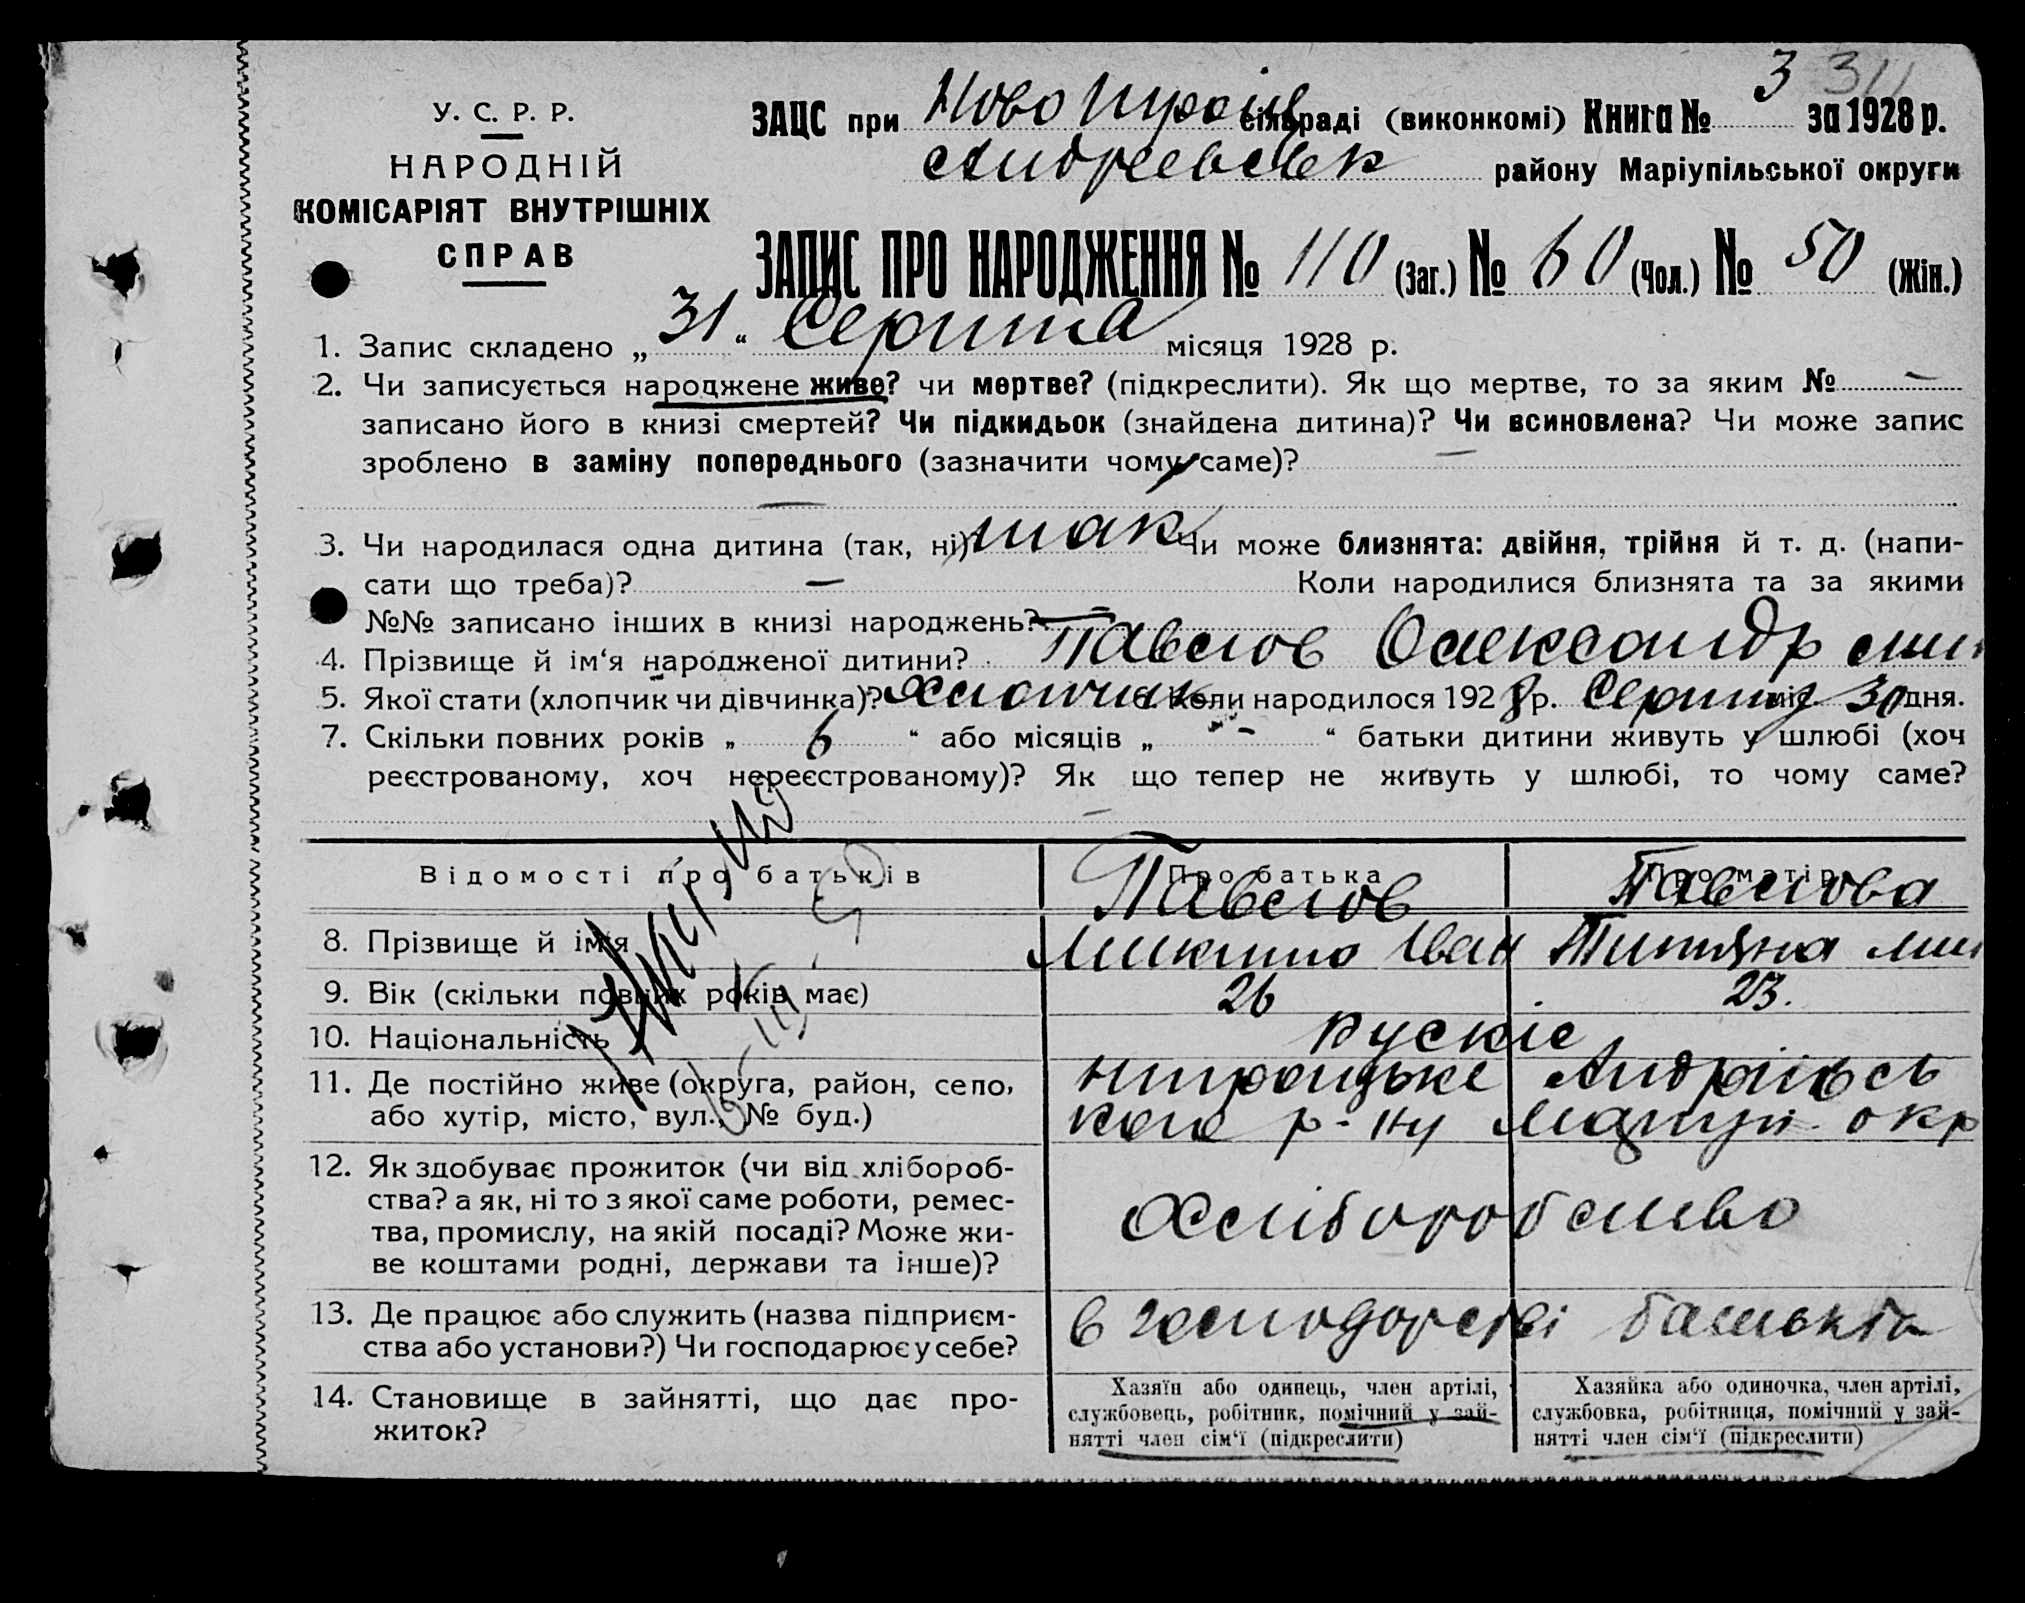 У. С. Р. Р.
НАРОДНІЙ
КОМІСАРІЯТ ВНУТРІШНІХ
СПРАВ
ЗАЦС при Ново Троіц сільраді (виконкомі) Книга № 3 за 1928 р.
Андреевськ району Маріупільської округи
ЗАПИС ПРО НАРОДЖЕННЯ № 110 (Заг.) № 60 (Чол.) № 50 (Жін.)
1. Запис складено „ 31 “ Серпня місяця 1928 р.
2. Чи записується народжене живе? чи мертве? (підкреслити). Як що мертве, то за яким № –
записано його в книзі смертей? Чи підкидьок (знайдена дитина)? Чи всиновлена? Чи може запис
зроблено в заміну попереднього (зазначити чому саме)? –
–
3. Чи народилася одна дитина (так, ні)? так Чи може близнята: двійня, трійня й т. д. (напи-
сати що треба)? – Коли народилися близнята та за якими
№№ записано інших в книзі народжень? –
4. Прізвище й ім‘я народженої дитини? Павлов Олександр
5. Якої стати (хлопчик чи дівчинка)? Хлопчик 6. Коли народилося 1928 р. Серпня міс. 30 дня.
7. Скільки повних років „ 6 “ або місяців „ – “ батьки дитини живуть у шлюбі (хоч
реєстрованому, хоч нереєстрованому)? Як що тепер не живуть у шлюбі, то чому саме?
–
Відомості про батьків Про батька Про матір
Павлов Павлова
8. Прізвище й ім‘я Микита Іван Титяна
9. Вік (скільки повних років має) 26 23.
10. Національність рускіе
11. Де постійно живе (округа, район, село, Нтроіцьке Андріівсь
або хутір, місто, вул., № буд.) кого р-ну Маріуп. окр
12. Як здобуває прожиток (чи від хлібороб-
ства? а як, ні то з якої саме роботи, ремес-
тва, промислу, на якій посаді? Може жи-
ве коштами родні, держави та інше)?
Хліборобство
13. Де працює або служить (назва підприєм-
ства або установи?) Чи господарює у себе?
в господарстві батька
14. Становище в зайнятті, що дає про-
житок?
Хазяїн або одинець, член артілі,
службовець, робітник, помічний у зай-
нятті член сім‘ї (підкреслити)
Хазяйка або одиночка, член артілі,
службовка, робітниця, помічний у зай-
нятті член сім‘ї (підкреслити)